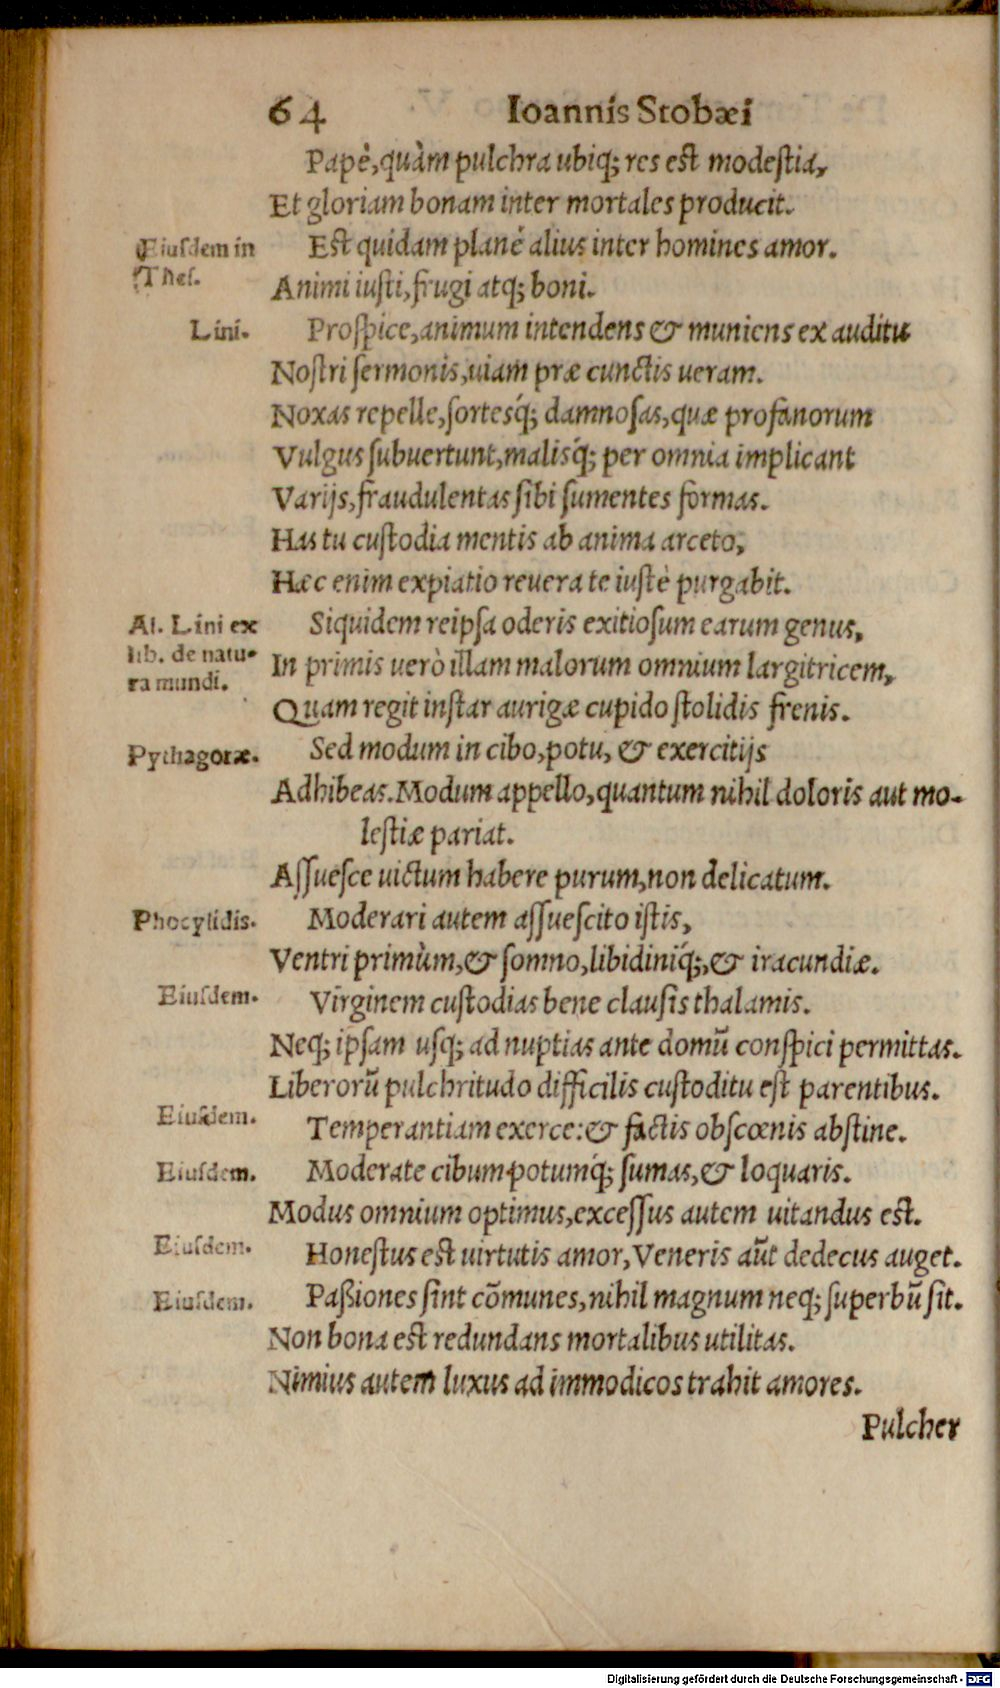 64 Ioannis Stobæi
Papè, quàm pulchra ubiq; res est modestia,
Et gloriam bonam inter mortales producit.
Eiusdem in Thes.
Est quidam planè alius inter homines amor.
Animi iusti, frugi atq; boni.
Lini.
Prospice, animum intendens & muniens ex auditu
Nostri sermonis, uiam præ cunctis ueram.
Noxas repelle, sortesq́; damnosas, quæ profanorum
Vulgus subuertunt, malisq́; per omnia implicant
Varijs, fraudulentas sibi sumentes formas.
Has tu custodia mentis ab anima arceto,
Hæc enim expiatio reuera te iustè purgabit.
Al. Lini ex
lib. de natu-
ra mundi.
Siquidem reipsa oderis exitiosum earum genus,
In primis uerò illam malorum omnium largitricem,
Quam regit instar aurigæ cupido stolidis frenis.
Pythagoræ.
Sed modum in cibo, potu, & exercitijs
Adhibeas. Modum appello, quantum nihil doloris aut mo-
lestiæ pariat.
Assuesce uictum habere purum, non delicatum.
Phocylidis.
Moderari autem assuescito istis,
Ventri primùm, & somno, libidiniq́;, & iracundiæ.
Eiusdem.
Virginem custodias bene clausis thalamis.
Neq; ipsam usq; ad nuptias ante domũ conspici permittas.
Liberorũ pulchritudo difficilis custoditu est parentibus.
Eiusdem.
Temperantiam exerce: & factis obscœnis abstine.
Eiusdem.
Moderate cibum potumq́; sumas, & loquaris.
Modus omnium optimus, excessus autem uitandus est.
Eiusdem.
Honestus est uirtutis amor, Veneris aũt dedecus auget.
Eiusdem.
Paßiones sint cõmunes, nihil magnum neq; superbũ sit.
Non bona est redundans mortalibus utilitas.
Nimius autem luxus ad immodicos trahit amores.
Pulcher
Digitalisierung gefördert durch die Deutsche Forschungsgemeinschaft - DFG